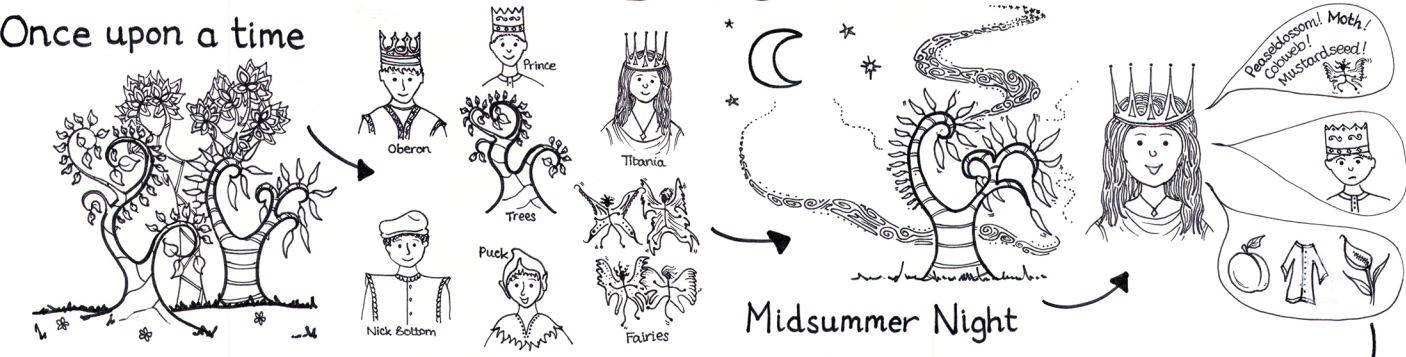 Once upon a time
Oberon
Prince
Titania
Trees
Nick Bottom
Puck
Fairies
Midsummer Night
Peaseblossom! Moth!
Cobweb!
Mustardseed!